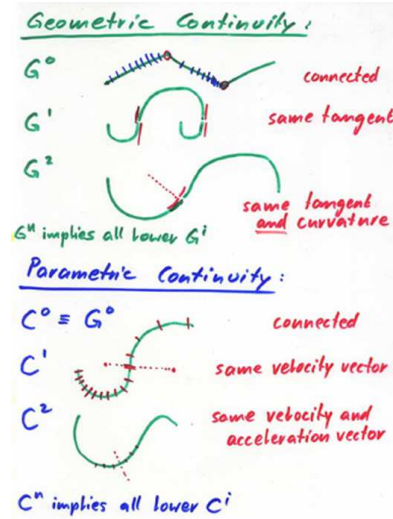 Geometric Continuity:
G⁰ connected
G¹ same tangent
G² same tangent
and curvature
Gⁿ implies all lower Gⁱ
Parametric Continuity:
C⁰ ≡ G⁰ connected
C¹ same velocity vector
C² same velocity and
acceleration vector
Cⁿ implies all lower Cⁱ